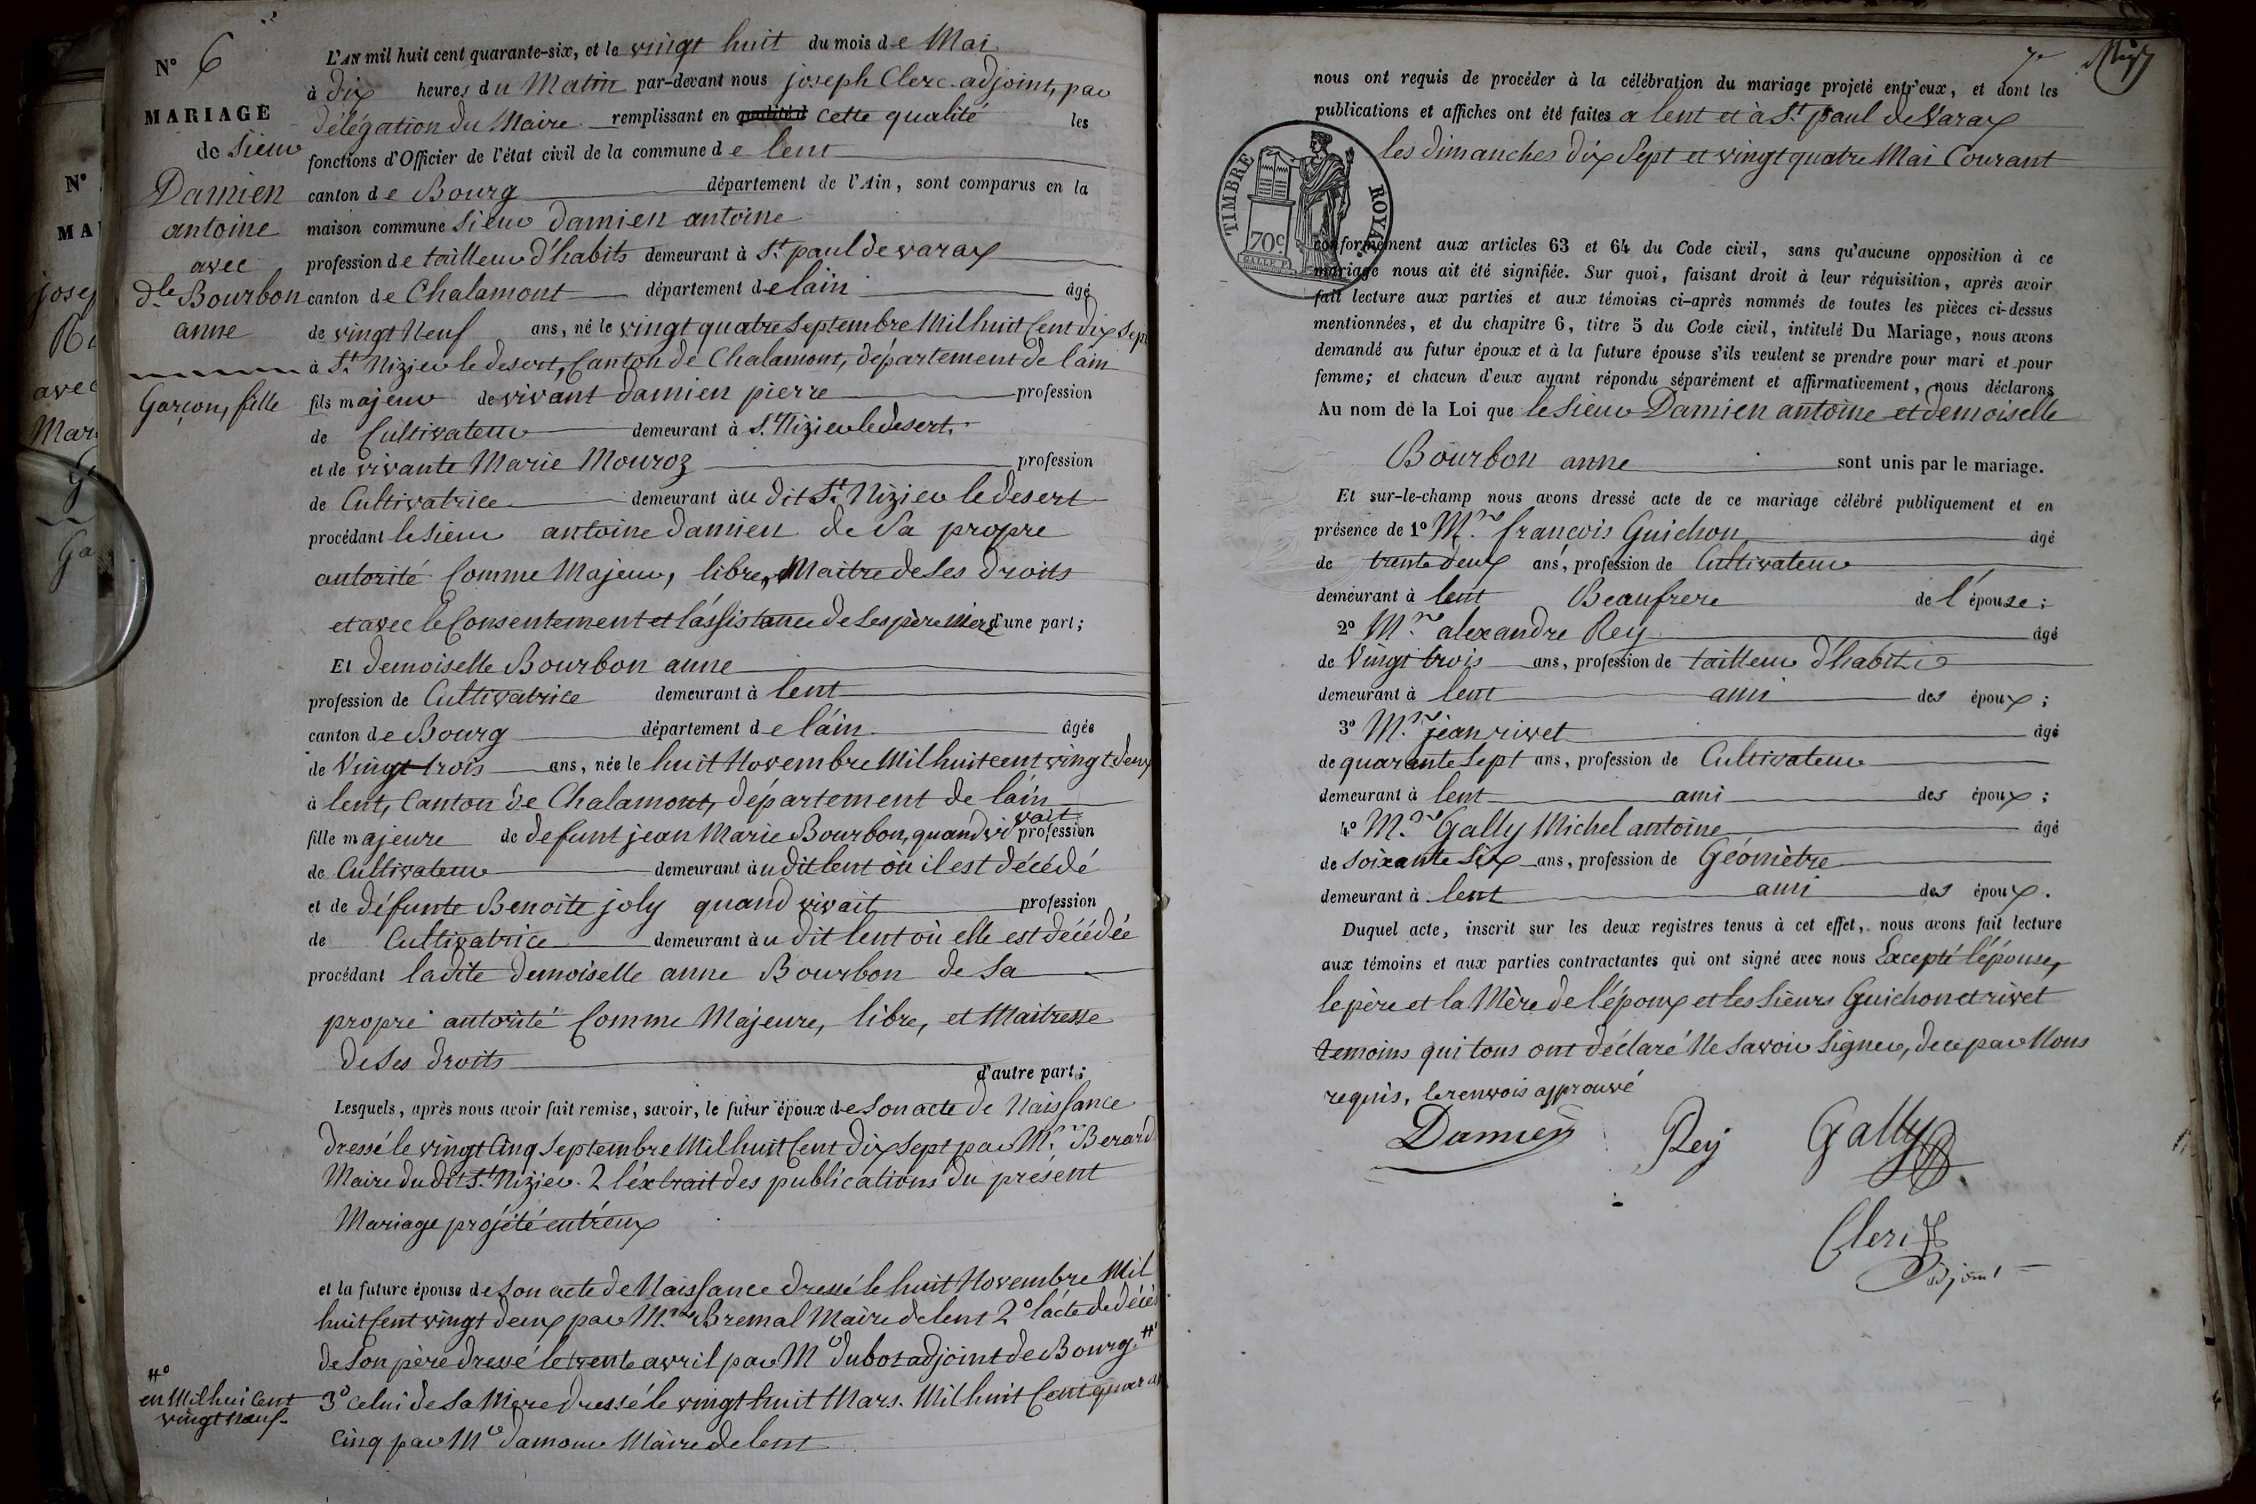 N° 6
MARIAGE
de Sieur
Damien
antoine
avec
dlle Bourbon
anne
Garçon, fille
L'AN mil huit cent quarante-six, et le vingt huit du mois de Mai
à dix heures du Matin par-devant nous joseph Clerc adjoint, par
délégation du Maire remplissant en cette qualité les
fonctions d'Officier de l'état civil de la commune de lent
canton de Bourg département de l'Ain, sont comparus en la
maison commune Sieur damien antoine
profession de tailleur d'habits demeurant à St paul de varax
canton de Chalamont département de lain âgé
de vingt Neuf ans, né le vingt quatre Septembre Mil huit Cent dix Sept
à St Nizier le desert, Canton de Chalamont, département de l'ain
fils majeur de vivant damien pierre profession
de Cultivateur demeurant à St Nizier le desert.
et de vivante Marie Mouroz profession
de Cultivatrice demeurant au dit St Nizier le desert
procédant le sieur antoine damien de Sa propre
autorité Comme Majeur, libre, Maitre de Ses droits
et avec le Consentement et l'assistance de Ses père Mère d'une part;
Et demoiselle Bourbon anne
profession de Cultivatrice demeurant à lent
canton de Bourg département de l'ain âgée
de Vingt trois ans, née le huit Novembre Mil huit cent vingt deux
à lent, Canton de Chalamont, département de l'ain
fille majeure de defunt jean Marie Bourbon, quand vivait profession
de Cultivateur demeurant au dit lent où il est décédé
et de défunte Benoite joly quand vivait profession
de Cultivatrice demeurant au dit lent où elle est décédée
procédant ladite demoiselle anne Bourbon de Sa
propre autorité Comme Majeure, libre, et Maitresse
de Ses droits d'autre part;
Lesquels, après nous avoir fait remise, savoir, le futur époux de Son acte de Naissance
dressé le vingt Cinq Septembre Mil huit Cent dix Sept par Mr Berard
Maire du dit St Nizier. 2 l'extrait des publications du présent
Mariage projété entr'eux
et la future épouse de Son acte de Naissance dressé le huit Novembre Mil
huit Cent vingt deux par Mr Bremal Maire de lent 2° l'acte de décès
de Son père dressé le trente avril par Mr dubost adjoint de Bourg
en Mil hui Cent
vingt neuf
3° Celui de Sa Mère dressé le vingt huit Mars. Mil huit Cent quarante
Cinq par Mr damour Maire de lent
nous ont requis de procéder à la célébration du mariage projeté entr'eux, et dont les
publications et affiches ont été faites a lent et à St paul de Varax
les dimanches dix Sept et vingt quatre Mai Courant
TIMBRE ROYAL
70c
conformément aux articles 63 et 64 du Code civil, sans qu'aucune opposition à ce
mariage nous ait été signifiée. Sur quoi, faisant droit à leur réquisition, après avoir
fait lecture aux parties et aux témoins ci-après nommés de toutes les pièces ci-dessus
mentionnées, et du chapitre 6, titre 5 du Code civil, intitulé Du Mariage, nous avons
demandé au futur époux et à la future épouse s'ils veulent se prendre pour mari et pour
femme; et chacun d'eux ayant répondu séparément et affirmativement, nous déclarons
Au nom de la Loi que le Sieur Damien antoine et demoiselle
Bourbon anne sont unis par le mariage.
Et sur-le-champ nous avons dressé acte de ce mariage célébré publiquement et en
présence de 1° Mr françois Guichon âgé
de trente deux ans, profession de Cultivateur
demeurant à lent Beaufrere de l'épouse;
2° Mr alexandre Rey âgé
de Vingt trois ans, profession de tailleur d'habits
demeurant à lent ami des époux;
3° Mr jean rivet âgé
de quarante Sept ans, profession de Cultivateur
demeurant à lent ami des époux;
4° Mr Gally Michel antoine âgé
de soixante Six ans, profession de Géomètre
demeurant à lent ami des époux.
Duquel acte, inscrit sur les deux registres tenus à cet effet, nous avons fait lecture
aux témoins et aux parties contractantes qui ont signé avec nous Excepté l'épouse,
le père et la Mère de l'époux et les Sieurs Guichon et rivet
temoins qui tous ont déclaré Ne Savoir Signer, de ce par Nous
requis, le renvois approuvé
Damien Rey Gally
Clerc
adjoint